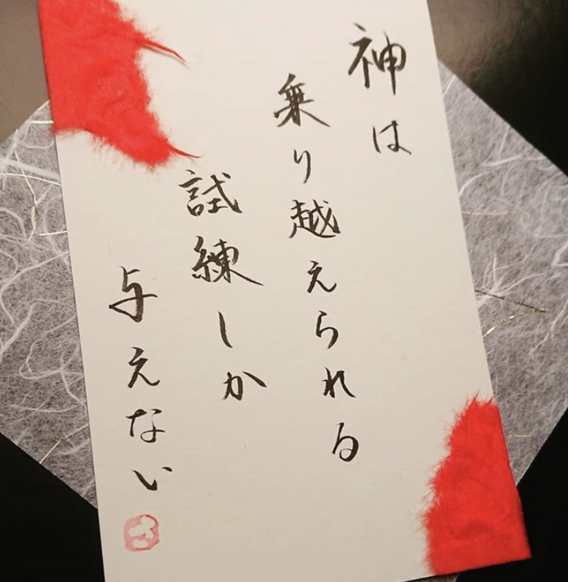 神は
乗り越えられる
試練しか
与えない
さ